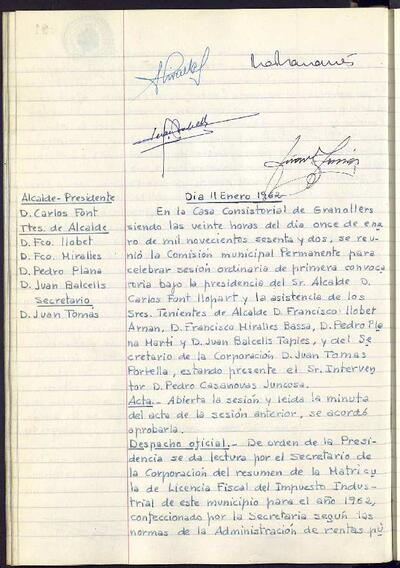 Alcalde-Presidente
D. Carlos Font
Ttes. de Alcalde
D. Fco. Llobet
D. Fco. Miralles
D. Pedro Plana
D. Juan Balcells
Secretario
D. Juan Tomás
Día 11 Enero 1962
En la Casa Consistorial de Granollers
siendo las veinte horas del día once de ene
ro de mil novecientos sesenta y dos, se reu-
nió la Comisión municipal Permanente para
celebrar sesión ordinaria de primera convoca
toria bajo la presidencia del Sr. Alcalde D.
Carlos Font Llopart y la asistencia de los
Sres. Tenientes de Alcalde D. Francisco Llobet
Arnan, D. Francisco Miralles Bassa, D. Pedro Pla
na Martí y D. Juan Balcells Tapies, y del Se
cretario de la Corporación D. Juan Tomás
Portella, estando presente el Sr. Interven
tor D. Pedro Casanovas Juncosa.
Acta.- Abierta la sesión y leida la minuta
del acta de la sesión anterior, se acordó
aprobarla.
Despacho oficial.- De orden de la Presi-
dencia se da lectura por el Secretario de
la Corporación del resumen de la Matrícu
la de Licencia Fiscal del Impuesto Indus-
trial de este municipio para el año 1962,
confeccionado por la Secretaría según las
normas de la Administración de rentas pú